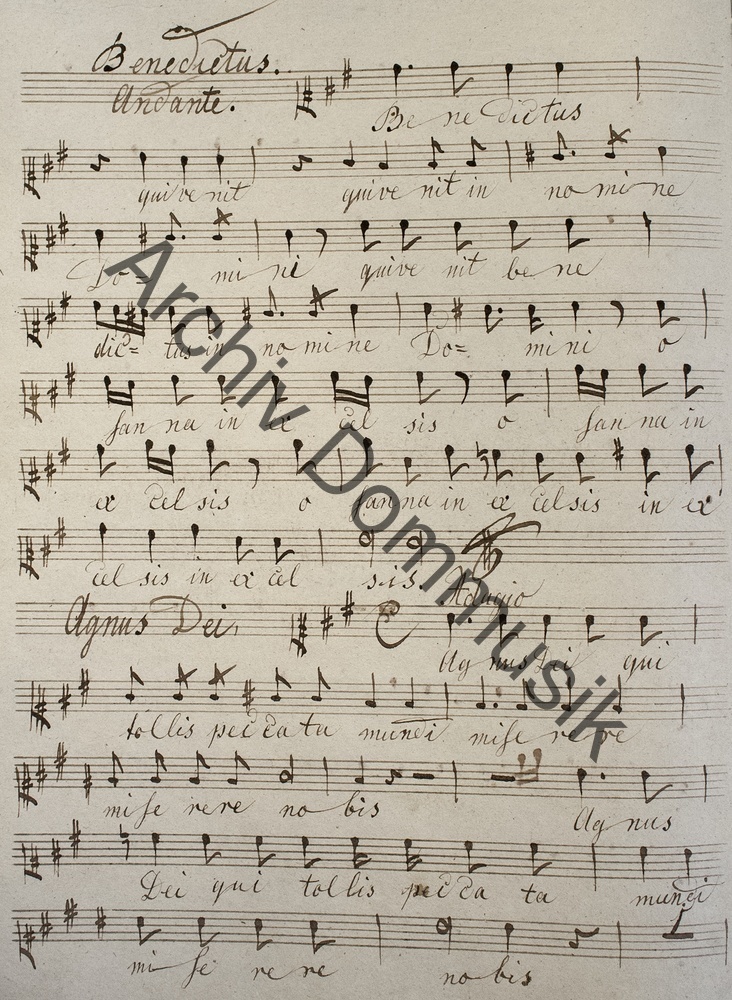 Benedictus.
Andante.
Be ne dictus
qui ve nit qui ve nit in no mi ne
Do= mi ni qui ve nit be ne
dic= tus in no mi ne Do= mi ni o
san na in ex cel sis o san na in
ex cel sis o san na in ex cel sis in ex
cel sis in ex cel sis
Adagio
Agnus Dei,
Ag nus Dei qui
tol lis pec ca ta mundi mise re re
mi se re re no bis Ag nus
Dei qui tol lis pec ca ta mundi
mi se re re no bis
Archiv Dommusik